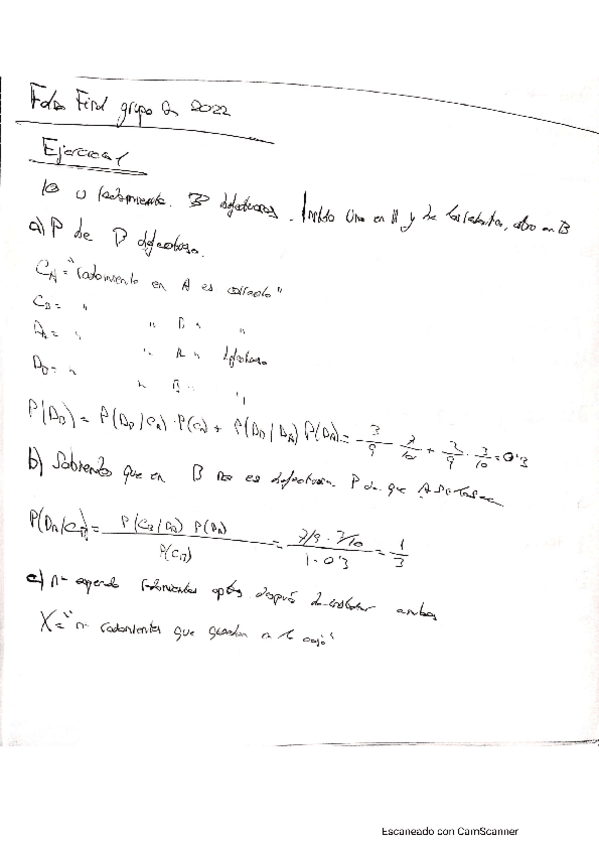 Final grupo 2022
Ejercicio 1
10 rodamientos. 3 defectuosos. Instalo uno en A y de los restantes, otro en B
a) P de B defectuoso.
C_A = "rodamiento en A es correcto"
C_B = " " B " "
D_A = " " A " defectuoso
D_B = " " B " "
P(D_B) = P(D_B/C_A) · P(C_A) + P(D_B/D_A) P(D_A) = 3/9 · 7/10 + · 3/10 = 0'3
b) Sabiendo que en B no es defectuoso. P de que A
P(D_A/C_B) = P(C_B/D_A) P(D_A) / P(C_B) = 7/9 · 3/10 / 1 - 0'3 = 1/3
c) nº esperado rodamientos después de instalar ambos
X = "nº rodamientos que quedan en la caja"
Escaneado con CamScanner